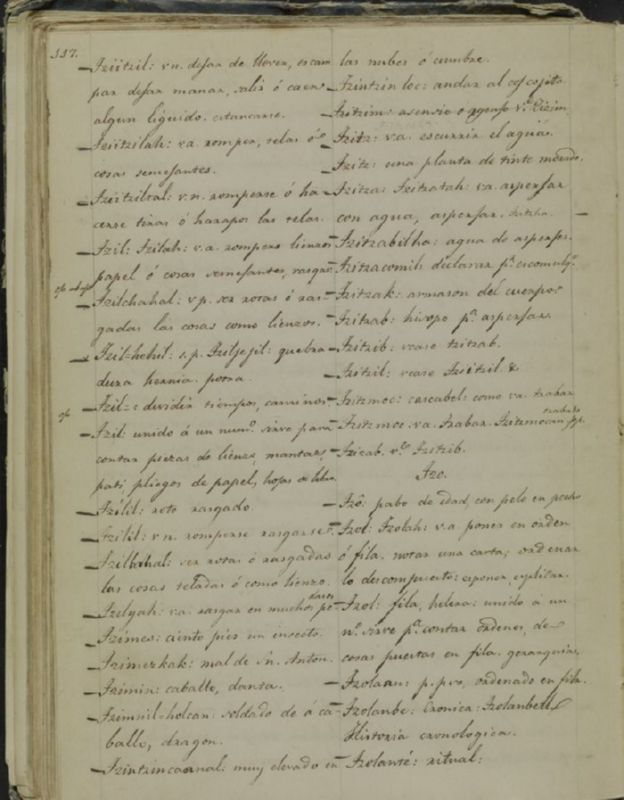 117.
Tziitzil: v.n. dejar de llover, escam
par dejar manar, salir ó caer
algun liquido. estancarse.
Tziitzilah: v.a. romper, telas ó
cosas semejantes.
Tziitzilbal: v.n. romperse ó ha-
cerse tiras ó harapos las telas.
Tzil: Tzilah: v.a. romper lienzos
papel ó cosas semejantes, rasgar
Tzilchahal: v.p. ser rotas ó ras-
gadas las cosas como lienzos.
Tzil=hehel: s.p. Tziljejil: quebra
dura hernia. potra.
Tzil=: dividir tiempos, caminos.
Tzil: unido á un num.º sirve para
contar piezas de lienzo, mantas,
pati, pliegos de papel, hojas de libro.
Tzilil: roto rasgado.
Tzilil: v.n. romperse rasgarse.
Tzilbahal: ser rotas ó rasgadas
las cosas teladas ó como lienzo.
Tzilyah: v.a. rasgar en muchos pe-
dazos
Tzimes: ciento pies un insecto.
Tzimezkak: mal de Sn. Anton.
Tzimin: caballo, danta.
Tzimnil-holcan: soldado de á ca-
ballo, dragon.
Tzintzincaanal: muy elevado en
las nubes ó cumbre.
Tzintzin loc: andar al
Tzitzim: asensio ó v.e Zizim.
Tzitz: v.a. escurrir el agua.
Tzitz: una planta de tinte morado.
Tzitza: Tzitzatah: v.a. asperjar
con agua, aspersar. Tzitzha.
Tzitzabilha: agua de asperjes.
Tzitzacomil: declarar p.r escomulg.º
Tzitzak: armason del cuerpo.
Tzitzab: hisopo p.a asperjar.
Tzitzib: vease tzitzab.
Tzitzil: vease Tziitzil &
Tzitzmoc: cascabel: como v.a. trabar
Tzitzmoc. v.a. trabar. Tzitzmocan trabado p.p.
Tzicab. v.e Tzitzib.
Tzo.
Tzô: pabo de edad, con pelo en pecho
Tzol: Tzolah: v.a. poner en orden
ó fila. notar una carta; ordenar
lo descompuesto: esponer, esplicar.
Tzol: fila, hilera: unido á un
n.º sirve p.a contar ordenes, de
cosas puestas en fila. gerarquias.
Tzolaan: p.p. ordenado en fila.
Tzolanbe: Cronica: Tzolanbell
Historia cronologica.
Tzolanté: ritual: